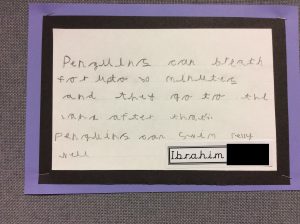 Penguins can breath
for upto 20 minutes
and they go to the
land after that.
Penguins can swim very
well
Ibrahim